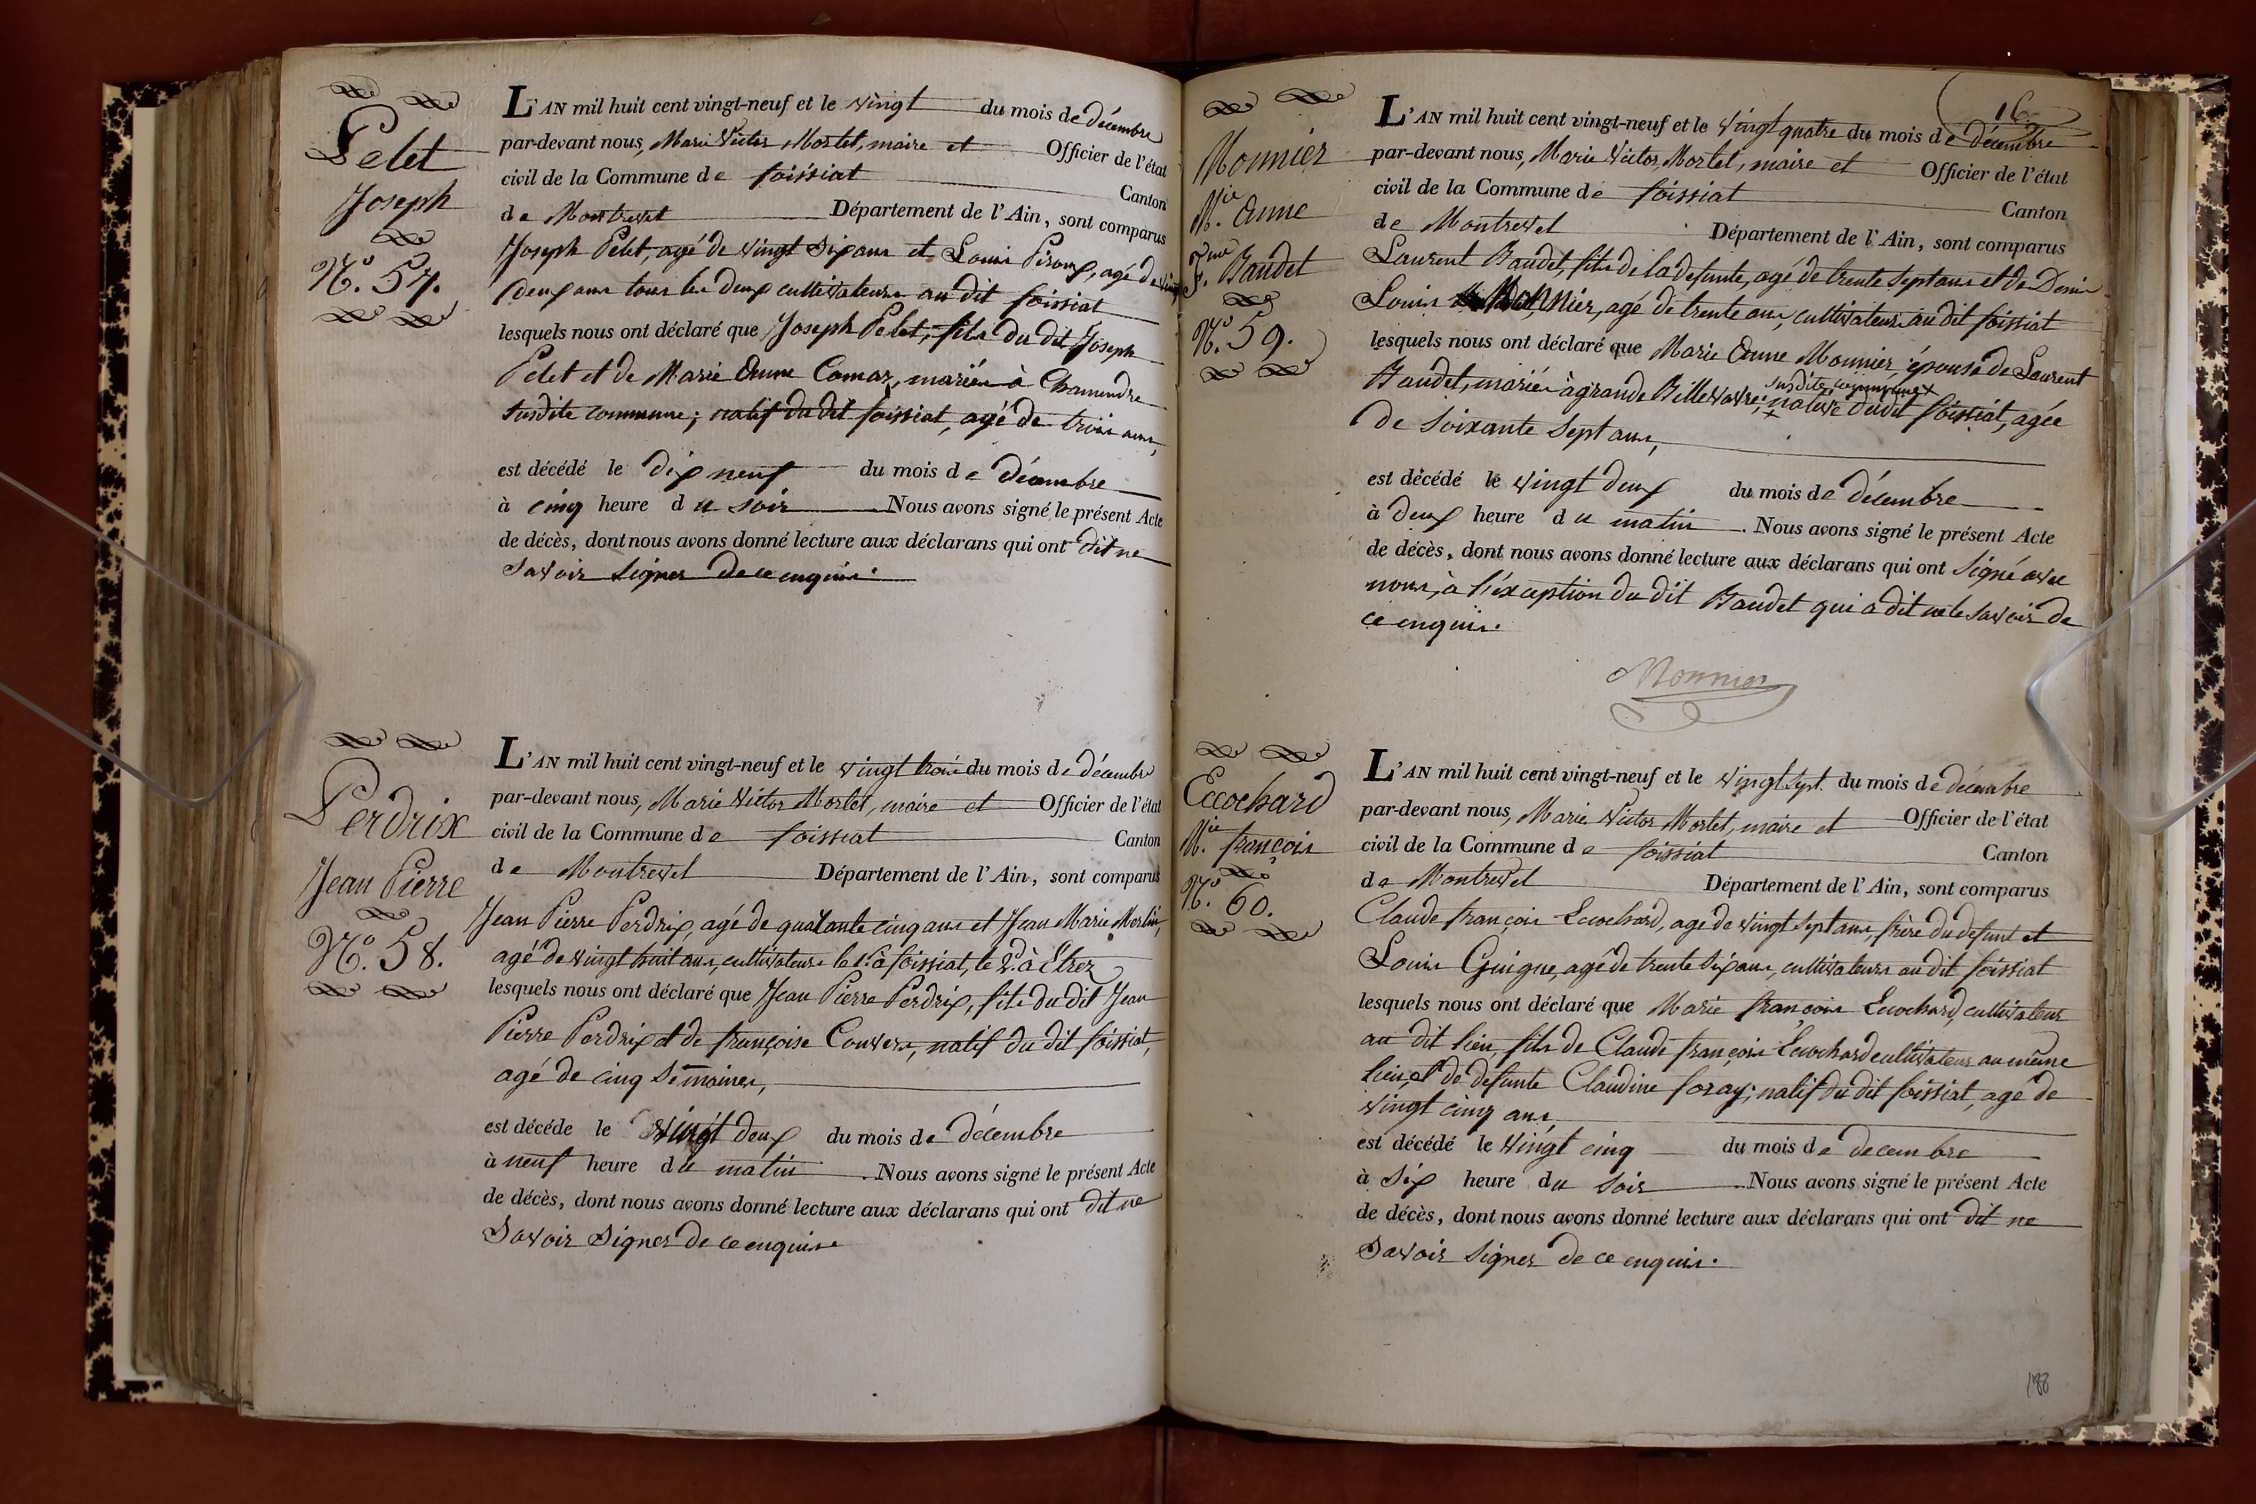 Pelet
Joseph
N.º 57.
L'AN mil huit cent vingt-neuf et le vingt du mois de décembre
par-devant nous, Marie Victor Mortet, maire et Officier de l'état
civil de la Commune de foissiat Canton
de Montrevel Département de l'Ain, sont comparus
Joseph Pelet, agé de vingt six ans et Louis Piroux, agé de vingt
deux ans tous les deux cultivateurs au dit foissiat
lesquels nous ont déclaré que Joseph Pelet, fils du dit Joseph
Pelet et de Marie Anne Comas, mariés à Chamendre
susdite commune; natif du dit foissiat, agé de trois ans,
est décédé le dix neuf du mois de décembre
à cinq heure du soir Nous avons signé le présent Acte
de décès, dont nous avons donné lecture aux déclarans qui ont dit ne
savoir signer de ce enquis.
Perdrix
Jean Pierre
N.º 58.
L'AN mil huit cent vingt-neuf et le vingt trois du mois de décembre
par-devant nous, Marie Victor Mortet, maire et Officier de l'état
civil de la Commune de foissiat Canton
de Montrevel Département de l'Ain, sont comparus
Jean Pierre Perdrix, agé de quarante cinq ans et Jean Marie Morlin,
agé de vingt huit ans, cultivateurs le 1.er à foissiat, le 2.d à Etrez
lesquels nous ont déclaré que Jean Pierre Perdrix, fils du dit Jean
Pierre Perdrix et de françoise Convers, natif du dit foissiat,
agé de cinq semaines,
est décédé le vingt deux du mois de décembre
à neuf heure du matin . Nous avons signé le présent Acte
de décès, dont nous avons donné lecture aux déclarans qui ont dit ne
savoir signer de ce enquis
16.
Monnier
M.ie Anne
f.me Baudet
N.º 59.
L'AN mil huit cent vingt-neuf et le vingt quatre du mois de décembre
par-devant nous, Marie Victor Mortet, maire et Officier de l'état
civil de la Commune de foissiat Canton
de Montrevel Département de l'Ain, sont comparus
Laurent Baudet, fils de la defunte, agé de trente sept ans et de Denis
Louis Monnier, agé de trente ans, cultivateurs au dit foissiat
lesquels nous ont déclaré que Marie Anne Monnier, épouse de Laurent
Baudet, mariés à grande Villevavre; susdite commune x
+ native dudit foissiat, agée
de soixante sept ans,
est décédé le vingt deux du mois de décembre
à deux heure du matin . Nous avons signé le présent Acte
de décès, dont nous avons donné lecture aux déclarans qui ont signé avec
nous, à l'éxception du dit Baudet qui a dit ne le savoir de
ce enquis.
Monnier
Ecochard
M.ie françois
N.º 60.
L'AN mil huit cent vingt-neuf et le vingt sept du mois de décembre
par-devant nous, Marie Victor Mortet, maire et Officier de l'état
civil de la Commune de foissiat Canton
de Montrevel Département de l'Ain, sont comparus
Claude françois Ecochard, agé de vingt sept ans, frère du defunt et
Louis Guigue, agé de trente six ans, cultivateurs au dit foissiat
lesquels nous ont déclaré que Marie françois Ecochard, cultivateur
au dit lieu, fils de Claude françois Ecochard cultivateur au même
lieu, et de defunte Claudine foray; natif du dit foissiat, agé de
vingt cinq ans,
est décédé le vingt cinq du mois de decembre
à six heure du soir . Nous avons signé le présent Acte
de décès, dont nous avons donné lecture aux déclarans qui ont dit ne
savoir signer de ce enquis.
188